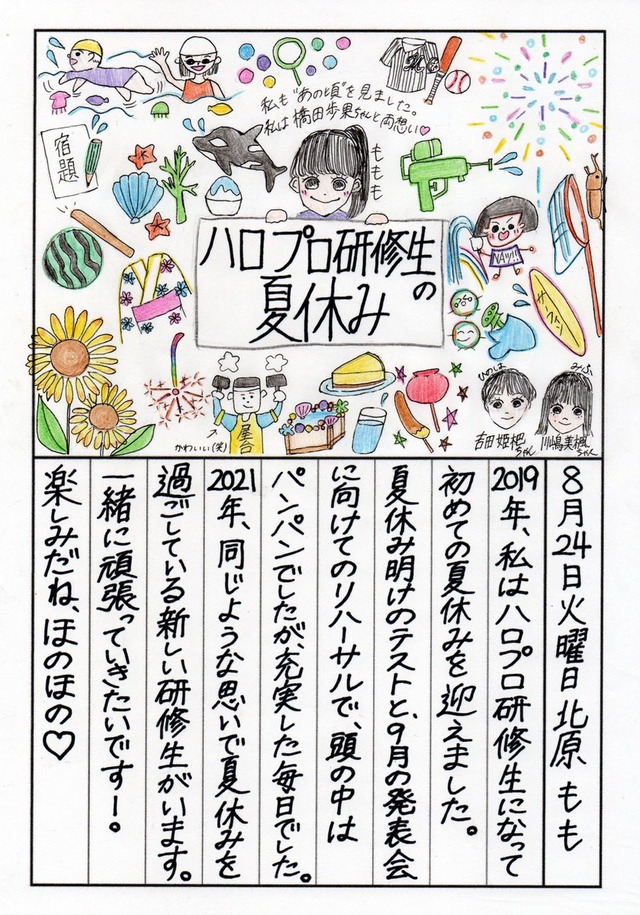 私も"あの頃"を見ました。
私は橋田歩果ちゃんと両想い♡
宿題
ももも
ハロプロ研修生の
夏休み
NATSU
サーフィン
屋台
かわいい(笑)
ひめは
吉田姫杷ちゃん
みふ
川嶋美楓ちゃん
8月24日火曜日 北原もも
2019年、私はハロプロ研修生になって
初めての夏休みを迎えました。
夏休み明けのテストと、9月の発表会
に向けてのリハーサルで、頭の中は
パンパンでしたが、充実した毎日でした。
2021年、同じような思いで夏休みを
過ごしている新しい研修生がいます。
一緒に頑張っていきたいですー。
楽しみだね、ほのほの♡